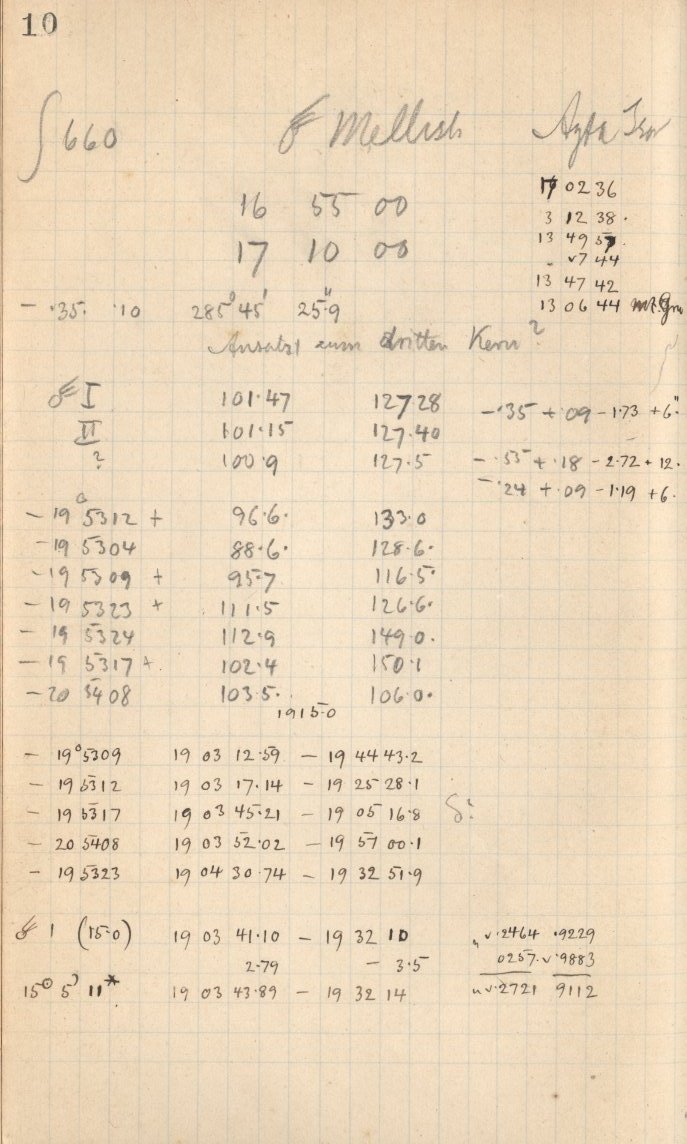 10
660 Mellish
16 55 00
17 10 00
17 02 36
3 12 38.
13 49 57.
13 47 42
13 06 44
- .35. .10 285° 45' 25".9
Ansatz zum dritten Kern?
I 101.47 127.28 -.35 + .09 - 1.73 + 6."
II 101.15 127.40
? 100.9 127.5 -.55 + .18 - 2.72 + 12.
-.24 + .09 - 1.19 + 6.
- 19° 5312 + 96.6. 133.0
- 19 5304 88.6. 128.6.
- 19 5309 + 95.7 116.5.
- 19 5323 + 111.5 126.6.
- 19 5324 112.9 149.0.
- 19 5317 + 102.4 150.1
- 20 5408 103.5. 106.0.
1915.0
- 19° 5309 19 03 12.59 - 19 44 43.2
- 19 5312 19 03 17.14 - 19 25 28.1
- 19 5317 19 03 45.21 - 19 05 16.8 δ?
- 20 5408 19 03 52.02 - 19 57 00.1
- 19 5323 19 04 30.74 - 19 32 51.9
☄ 1 (15.0) 19 03 41.10 - 19 32 10 .2464 .9229
2.79 - 3.5 0257 .9883
15 5 11* 19 03 43.89 - 19 32 14 .2721 9112